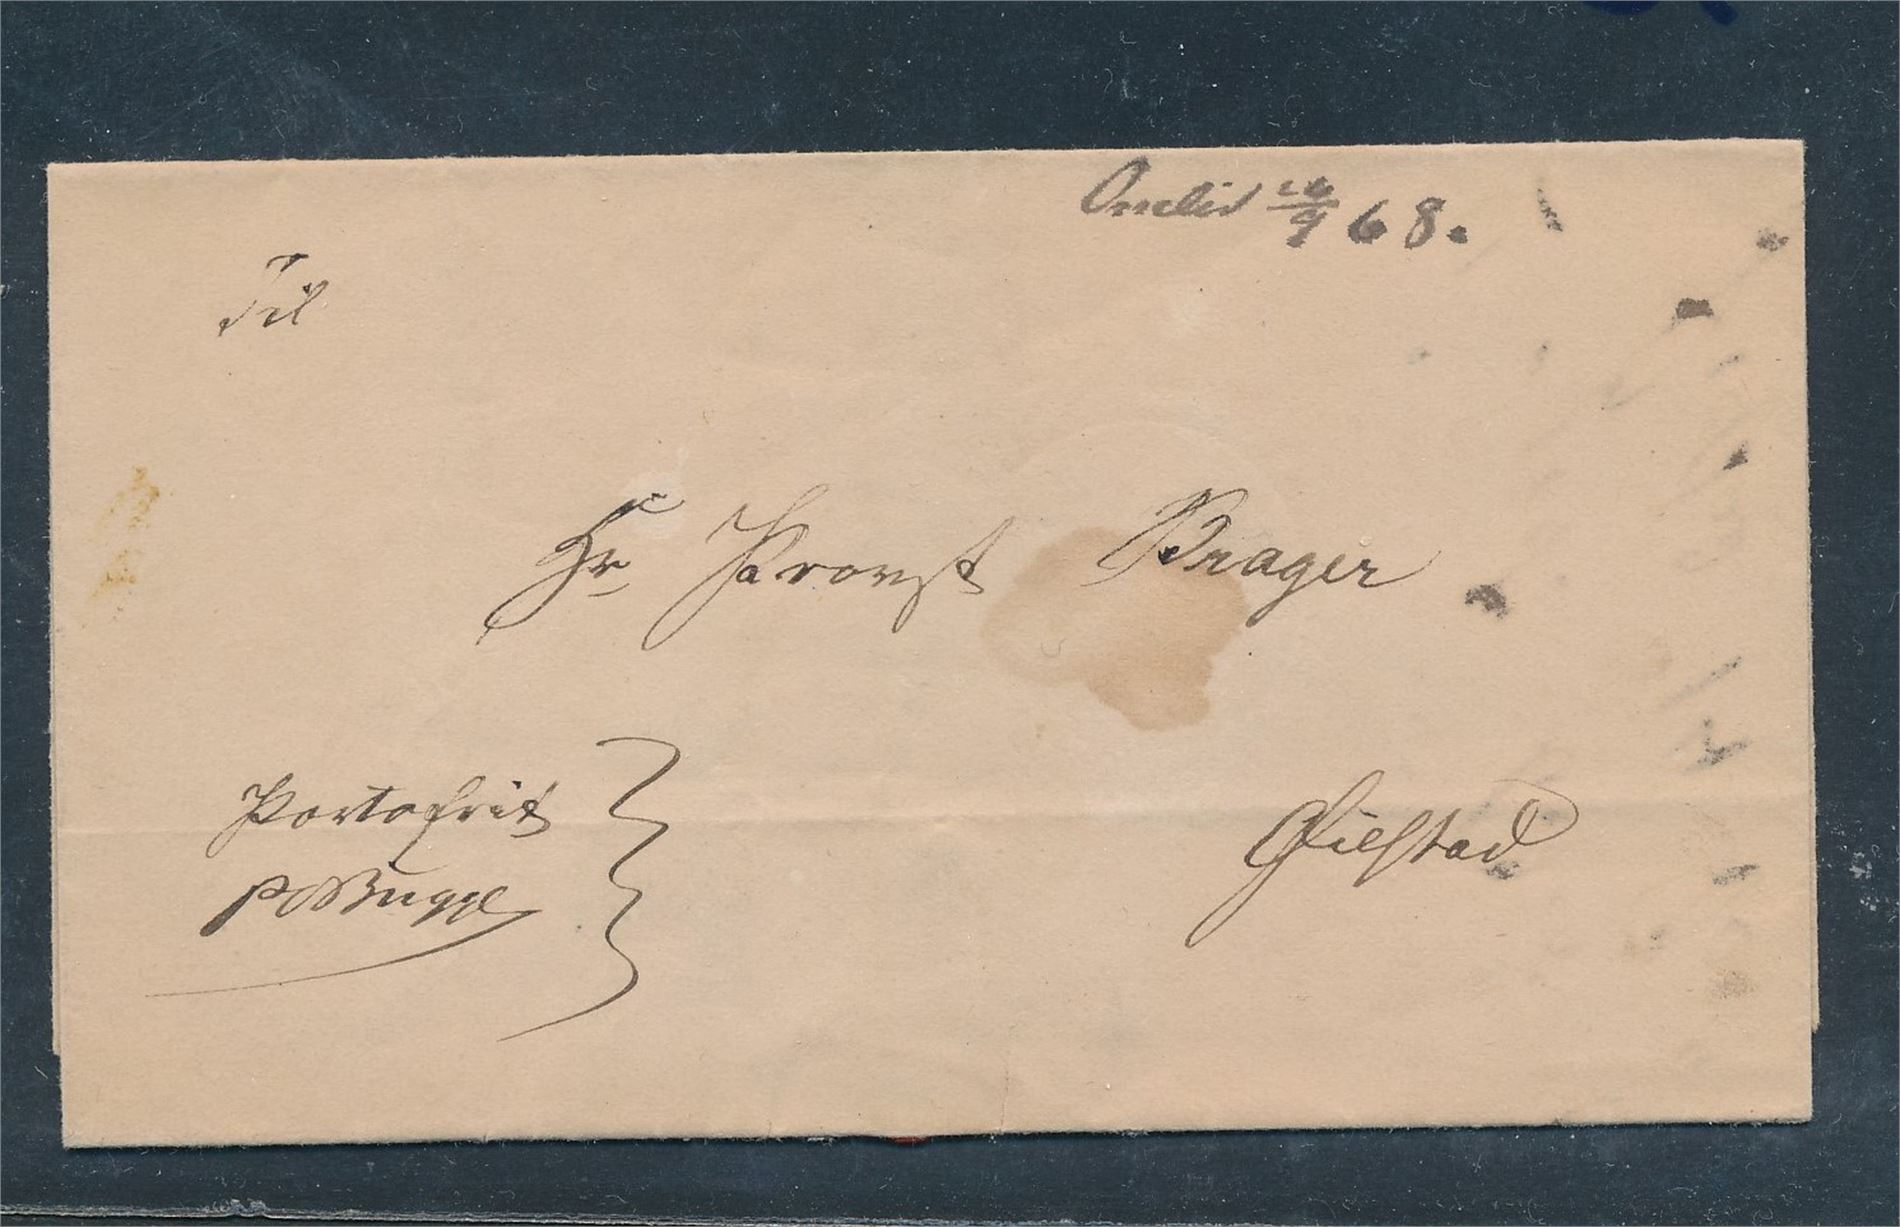 Omlid 26/9 68.
Til
Hr Provst Prager
Portofrit
PBugge
Gielstad